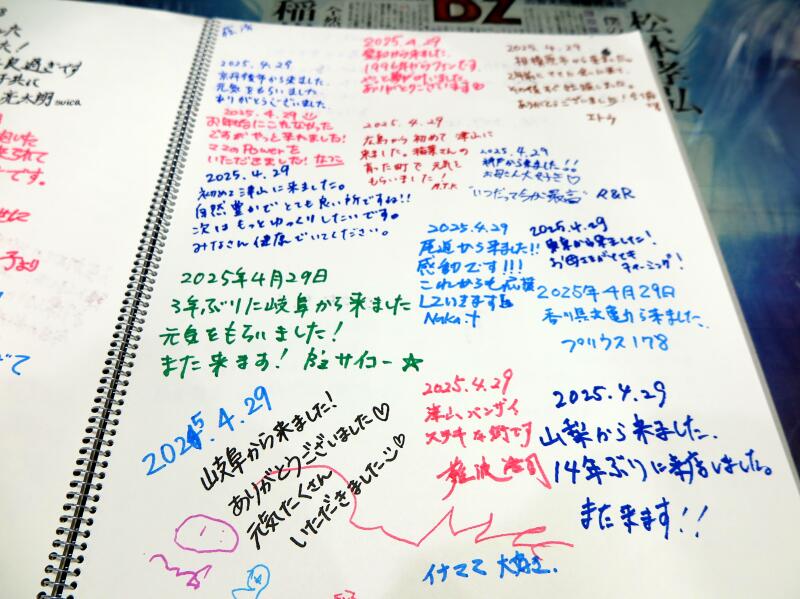 稲
B'z
松本孝弘
過ぎです
suica
より
2025.4.29
から来ました
元気をもらいました
ありがとうございました
2025.4.29
お仕事
やっと来れました!
ママのPowerを
いただきました!
2025.4.29
初めて津山に来ました。
自然豊かでとても良い所ですね!!
次はもっとゆっくりしたいです。
みなさん健康でいてください。
2025.4.29
愛知から来ました。
1996年からファンです。
ありがとうございます♡
2025.4.29
相模原市から来ました。
ありがとうございました!
2025.4.29
広島から初めて津山に
来ました。稲葉さんの
育った町で元気を
もらいました!
M.T.K
2025.4.29
神戸から来ました!!
お母さん大好き♡
"いつだって今が最高"
R&R
2025.4.29
尾道から来ました!!
感動です!!!
これからも応援
していきます
Naka
2025.4.29
から来ました!
お母さまがとても
チャーミング!
2025年4月29日
香川県
から来ました.
プリウス178
2025年4月29日
3年ぶりに岐阜から来ました
元気をもらいました!
また来ます! B'zサイコー☆
2025.4.29
岐阜から来ました!
ありがとうございました♡
元気たくさん
いただきました
2025.4.29
津山、バンザイ
ステキな街です
2025.4.29
山梨から来ました.
14年ぶりに来店しました。
また来ます!!
イナママ 大好き.